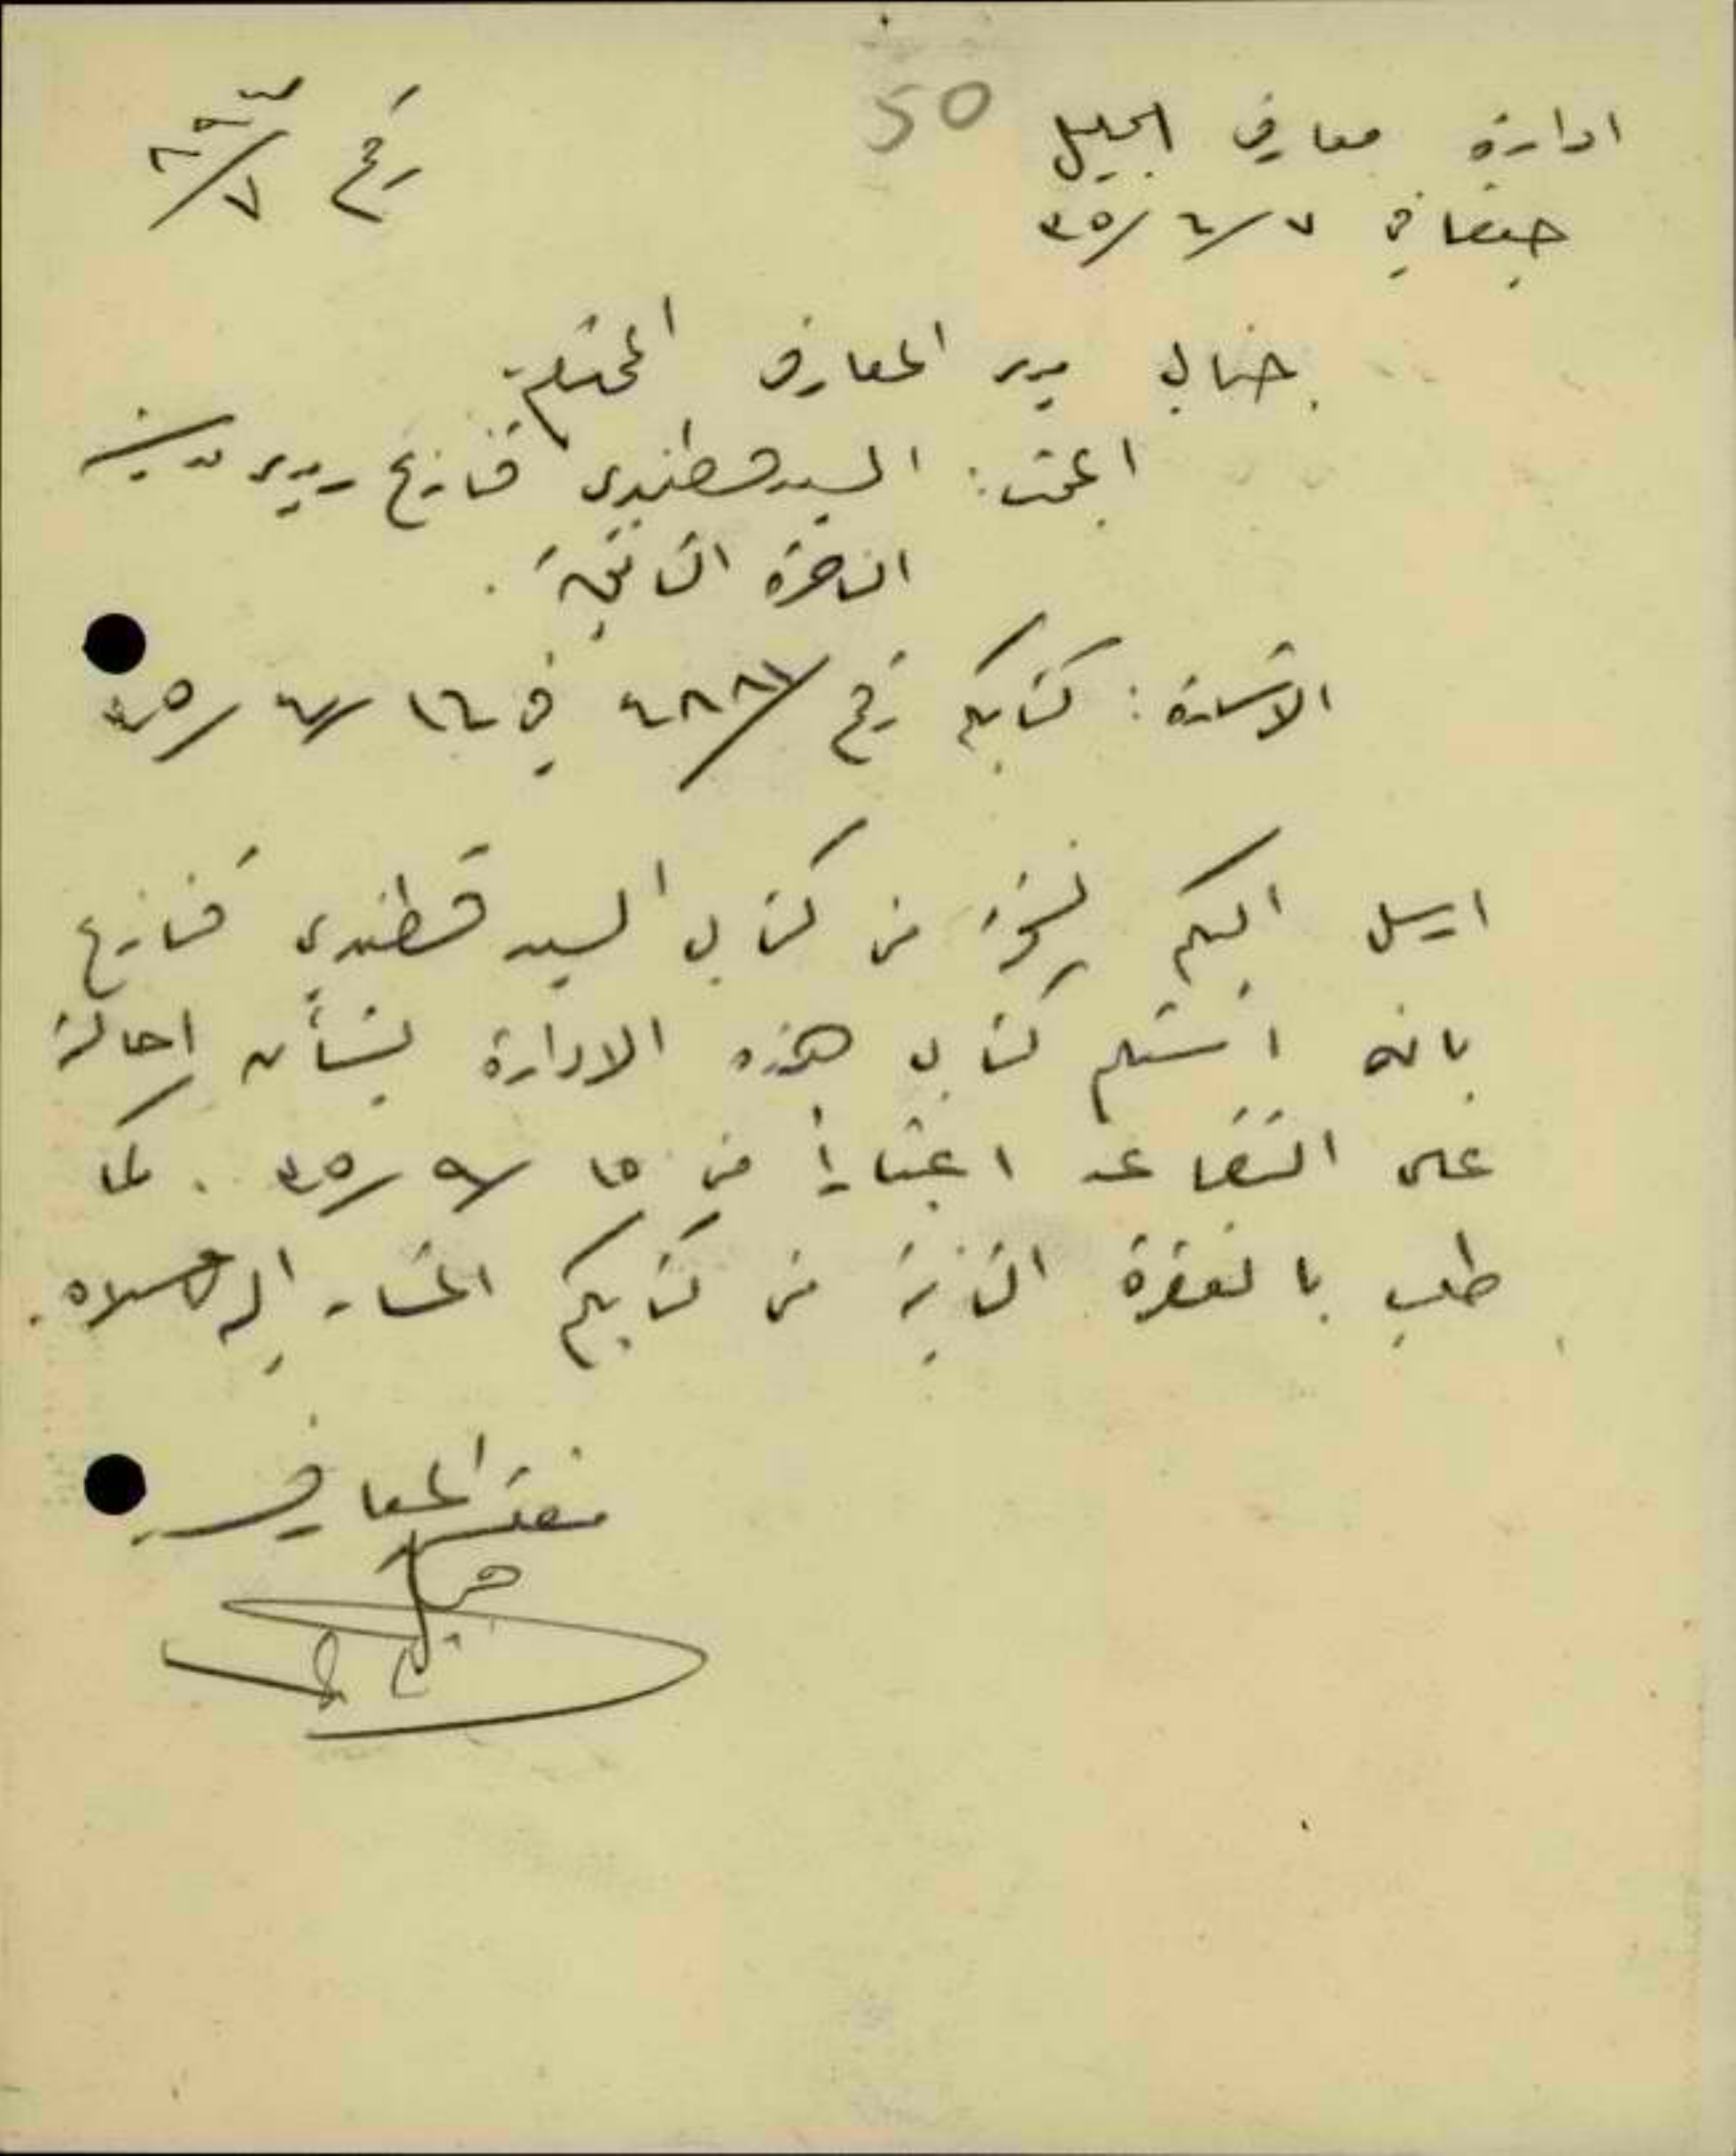 50
ادارة معارف الجليل
رقم ٧/٨٩٣
حيفا في ٧/٦/٣٥
جناب مدير المعارف المحترم
المبحث: السيد قسطندي قنازع مدير مدرسة
الناصرة الثانية.
الاشارة: كتابكم رقم في ٣٥/
ارسل اليكم نسخة من كتاب السيد قسطندي قنازع
بانه استلم كتاب هذه الادارة بشأن احالته
على التقاعد اعتباراً من ١٥/٩/٣٥. كما
طلب بالفقرة الثانية من كتابكم المشار اليه اعلاه.
مفتش المعارف